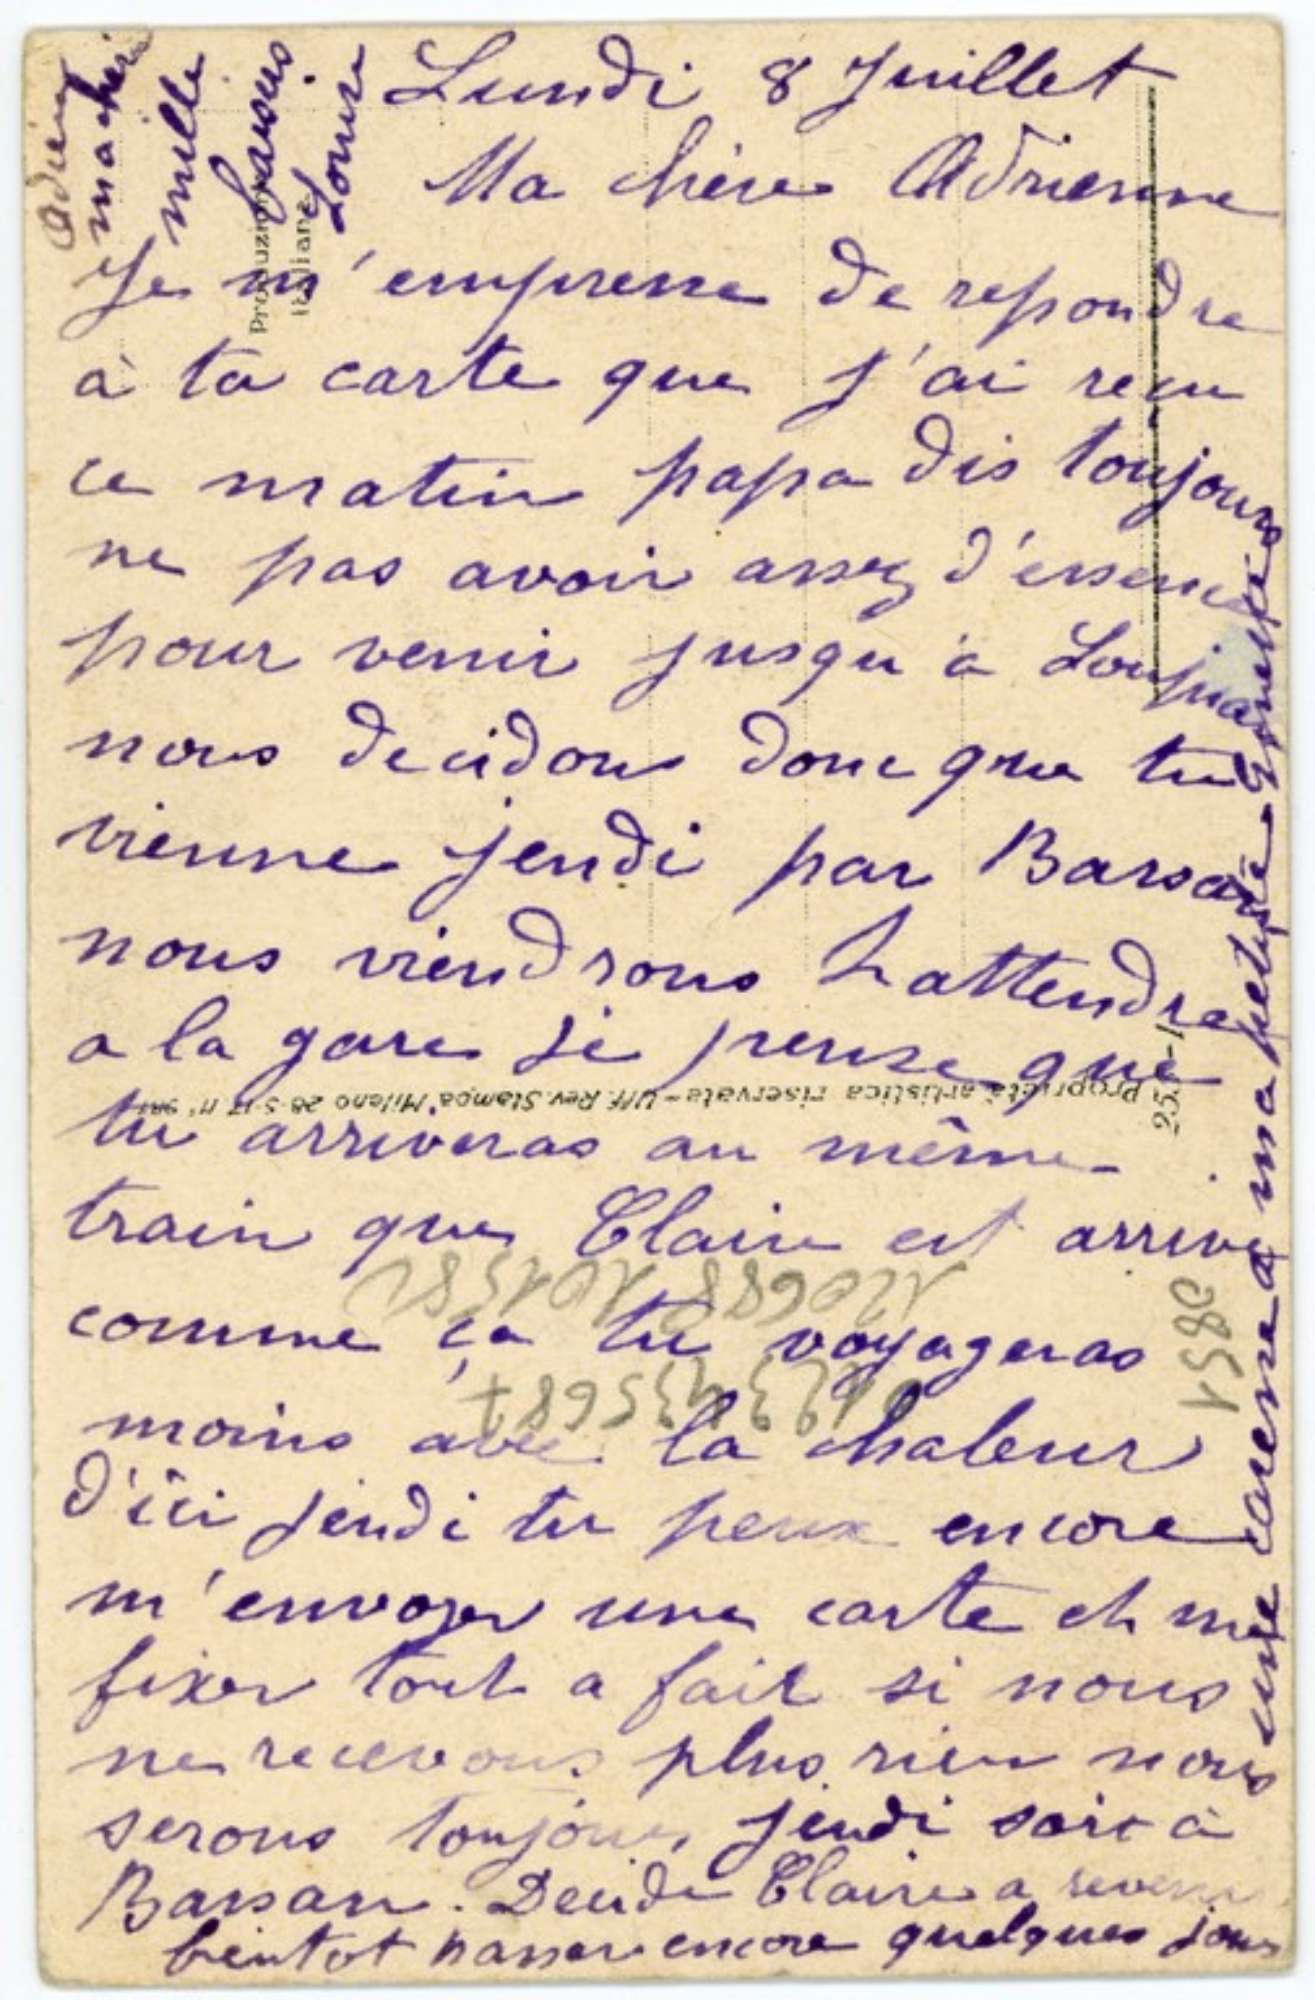 Lundi 8 Juillet
Ma chère Adrienne
Je m'empresse de repondre
à ta carte que j'ai reçu
ce matin papa dis toujours
ne pas avoir assez d'essence
pour venir jusqu'à
nous decidons donc que tu
vienne jeudi par Barsac
nous viendrons t attendre
a la gare je pense que
tu arriveras au même
train que Claire est arrivé
comme ça tu voyageras
moins avec la chaleur
d'içi jeudi tu peux encore
m'envoyer une carte et me
fixer tout a fait si nous
ne recevons plus rien nous
serons toujours jeudi soir à
Barsac. Decide Claire a revenir
bientot passer encore quelques jours
une caresse a ma petite
Adieu
ma chérie
mille
baisers
Louise
Produzione
Italiana
Proprietà artistica riservata - Uff. Rev. Stampa Milano 28-5-17 n°